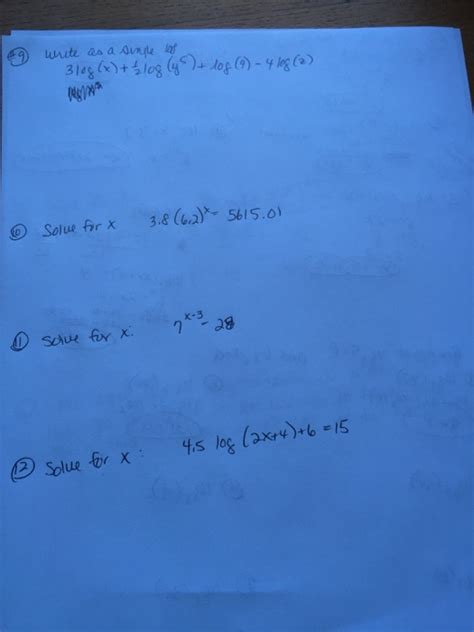 #9) Write as a single log
3log(x) + 1/2 log(y⁵) + log(9) - 4log(2)
⑥ Solve for x 3.8(6.2)ˣ = 5615.01
⑪ Solve for x: 7ˣ⁻³ = 28
⑫ Solve for x: 4.5 log(2x+4)+6=15